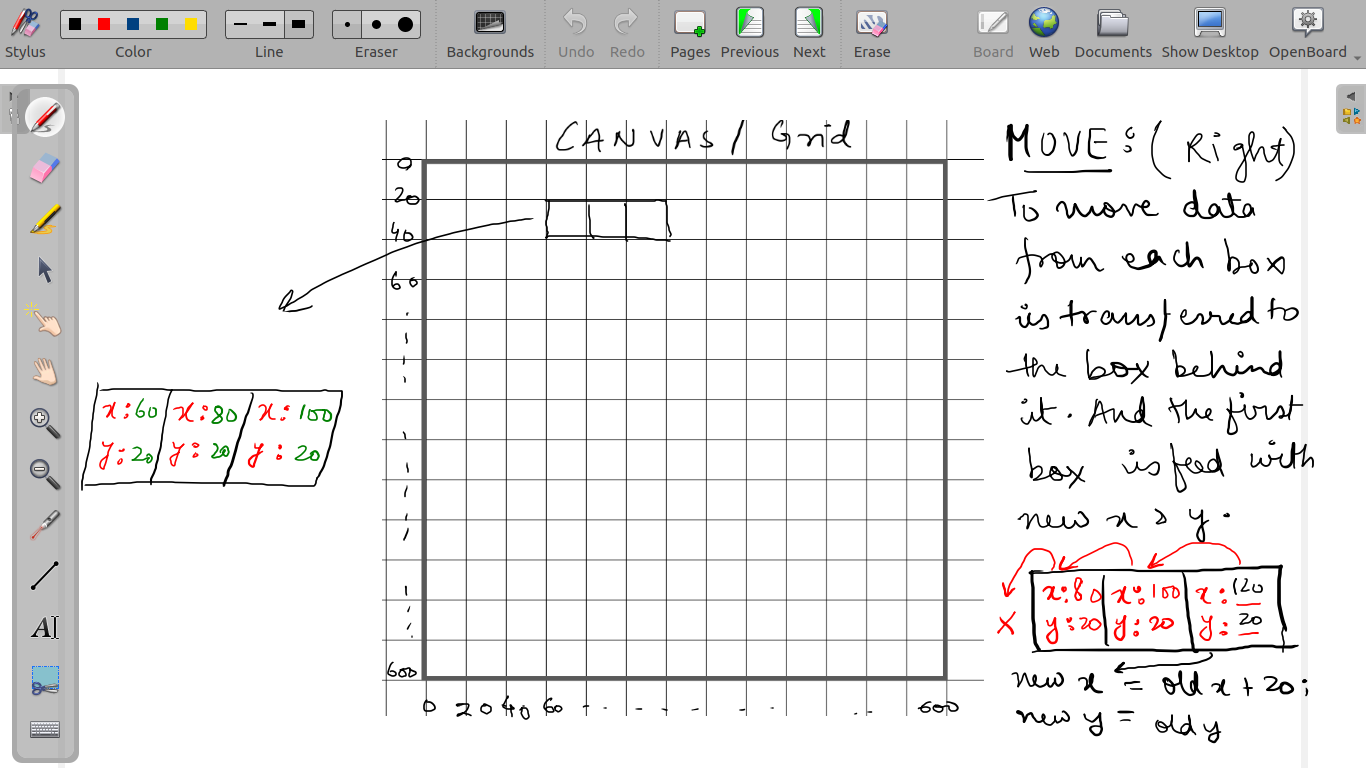 Stylus Color Line Eraser Backgrounds Undo Redo Pages Previous Next Erase Board Web Documents Show Desktop OpenBoard
CANVAS / Grid
0
20
40
60
600
0 20 40 60 600
x:60 x:80 x:100
y:20 y:20 y:20
MOVE: (Right)
To move data
from each box
is transferred to
the box behind
it. And the first
box is feed with
new x & y.
x:80 x:100 x:120
X y:20 y:20 y:20
new x = old x + 20;
new y = old y